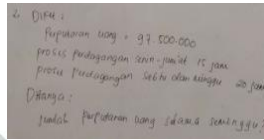 2. Diket :
Perputaran uang : 97.500.000
proses perdagangan senin-jumat 15 jam
proses perdagangan sabtu dan minggu 20 jam
Ditanya :
jumlah perputaran uang selama seminggu?